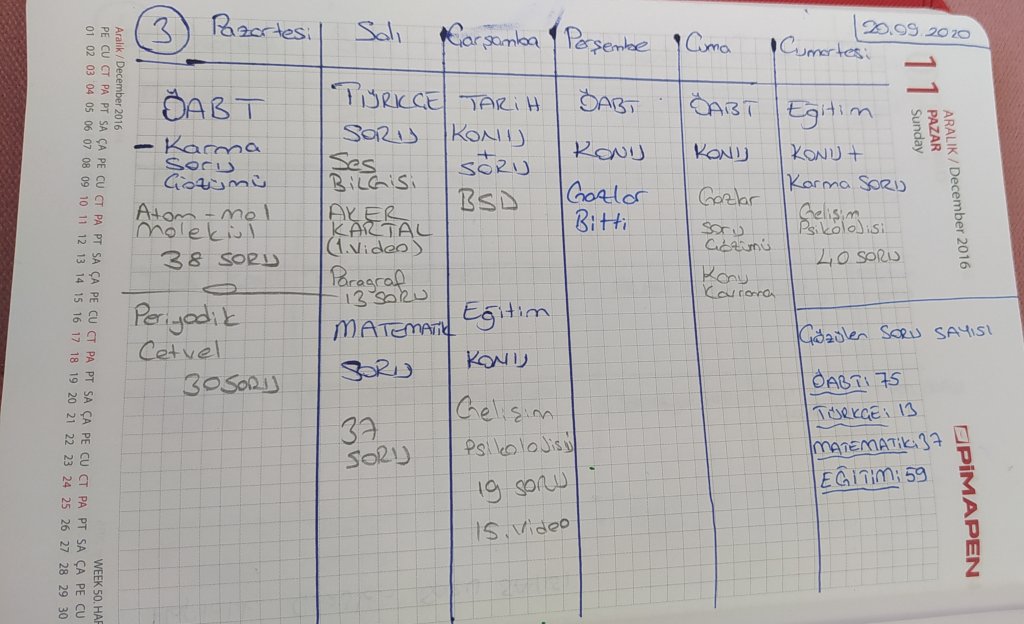 3
Pazartesi
Salı
Çarşamba
Perşembe
Cuma
Cumartesi
20.09.2020
ÖABT
- Karma
Soru
Çözümü
Atom - mol
Molekül
38 SORU
Periyodik
Cetvel
30 SORU
TÜRKÇE
SORU
Ses
BiLGiSi
AKER
KARTAL
(1.Video)
Paragraf
13 SORU
MATEMATiK
SORU
37
SORU
TARiH
KONU
+
SORU
BSD
Eğitim
KONU
Gelişim
Psikolojisi
19 SORU
15. Video
ÖABT
KONU
Gazlar
Bitti
ÖABT
KONU
Gazlar
Soru
Çözümü
Konu
Kavrama
Eğitim
KONU +
Karma SORU
Gelişim
Psikolojisi
40 SORU
Çözülen SORU SAYISI
ÖABT: 75
TÜRKÇE: 13
MATEMATiK: 37
EĞiTiM: 59
11
ARALIK / December 2016
PAZAR
Sunday
PiMAPEN
Aralık / December 2016
PE CU CT PA PT SA ÇA PE CU CT PA PT SA ÇA PE CU CT PA PT SA ÇA PE CU CT PA PT SA ÇA PE CU
01 02 03 04 05 06 07 08 09 10 11 12 13 14 15 16 17 18 19 20 21 22 23 24 25 26 27 28 29 30
WEEK 50. HAF